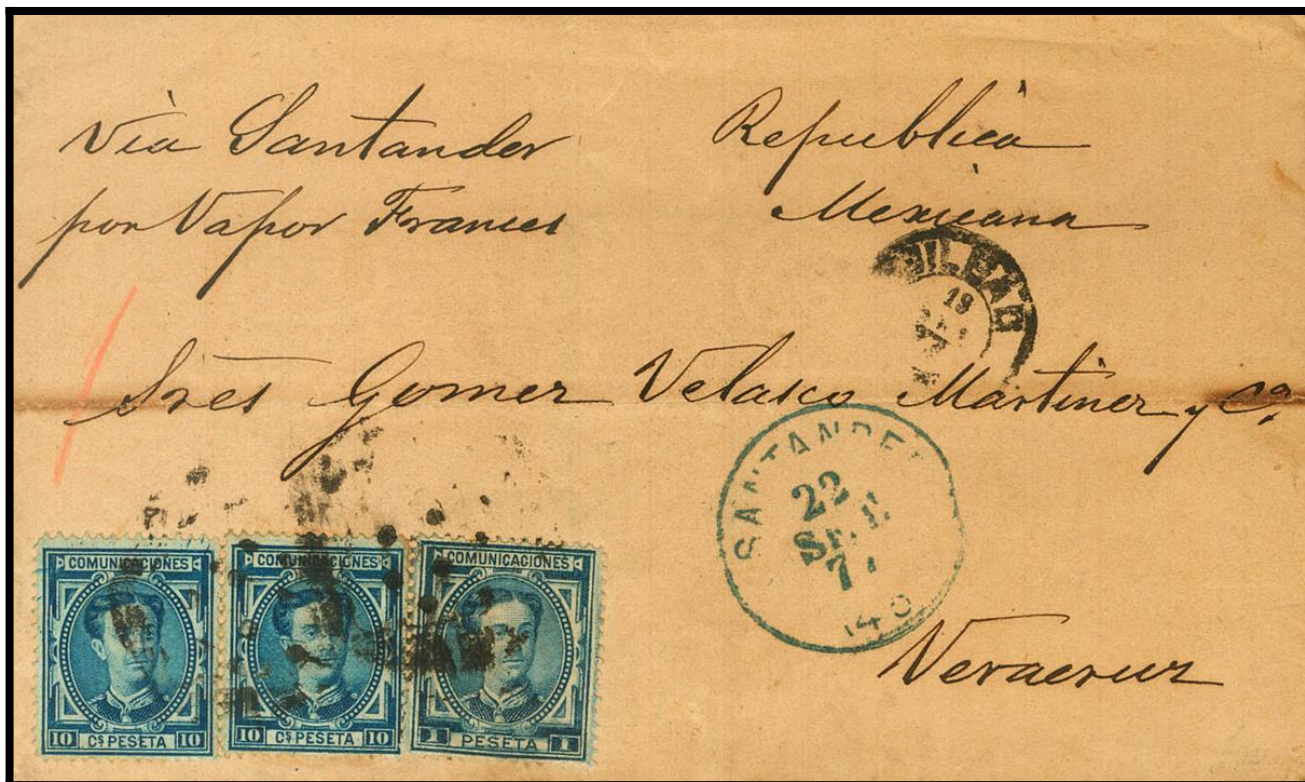 Via Santander
por Vapor Frances
Republica
Mexicana
BILBAO
19
Sres Gomez Velasco Martinez y Ca
SANTANDER
22
SET.
7
Veracruz
COMUNICACIONES
10 Cs PESETA 10
COMUNICACIONES
10 Cs PESETA 10
COMUNICACIONES
1 PESETA 1